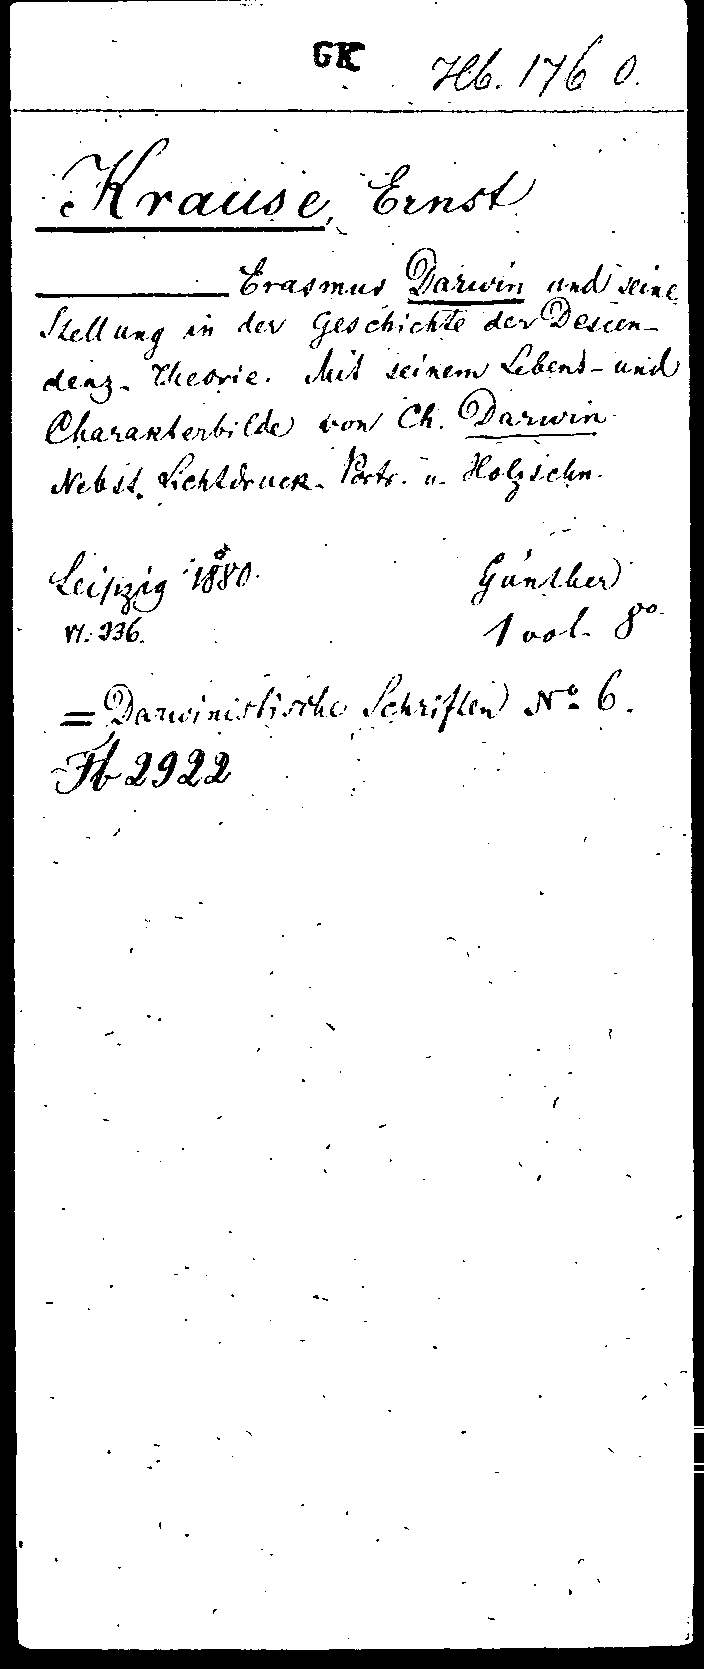 GK
Hb. 176 0.
Krause, Ernst
Erasmus Darwin und seine
Stellung in der Geschichte der Descen-
denz-Theorie. Mit seinem Lebens- und
Charakterbilde von Ch. Darwin.
Nebst Lichtdruck-Portr. u. Holzschn.
Leipzig 1880. Günther
VI. 236. 1 vol. 8º
= Darwinistische Schriften Nº 6.
Fb 2922